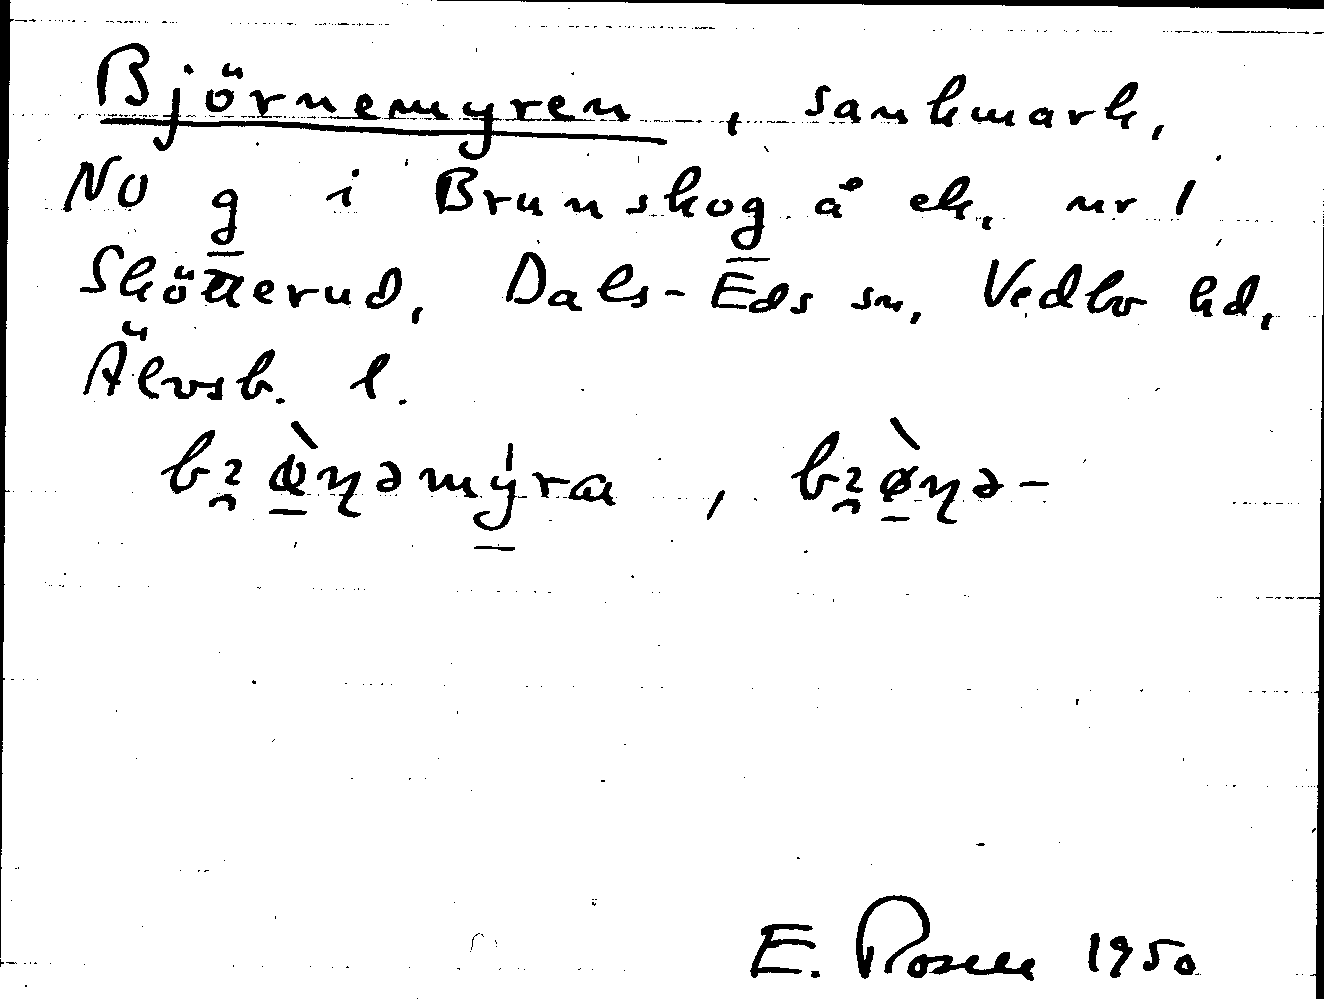 Björnemyren, sankmark,
NO g i Brunskog å ek. nr 1
Skötterud, Dals-Eds sn, Vedbo hd,
Älvsb. l.
E. Rosell 1950